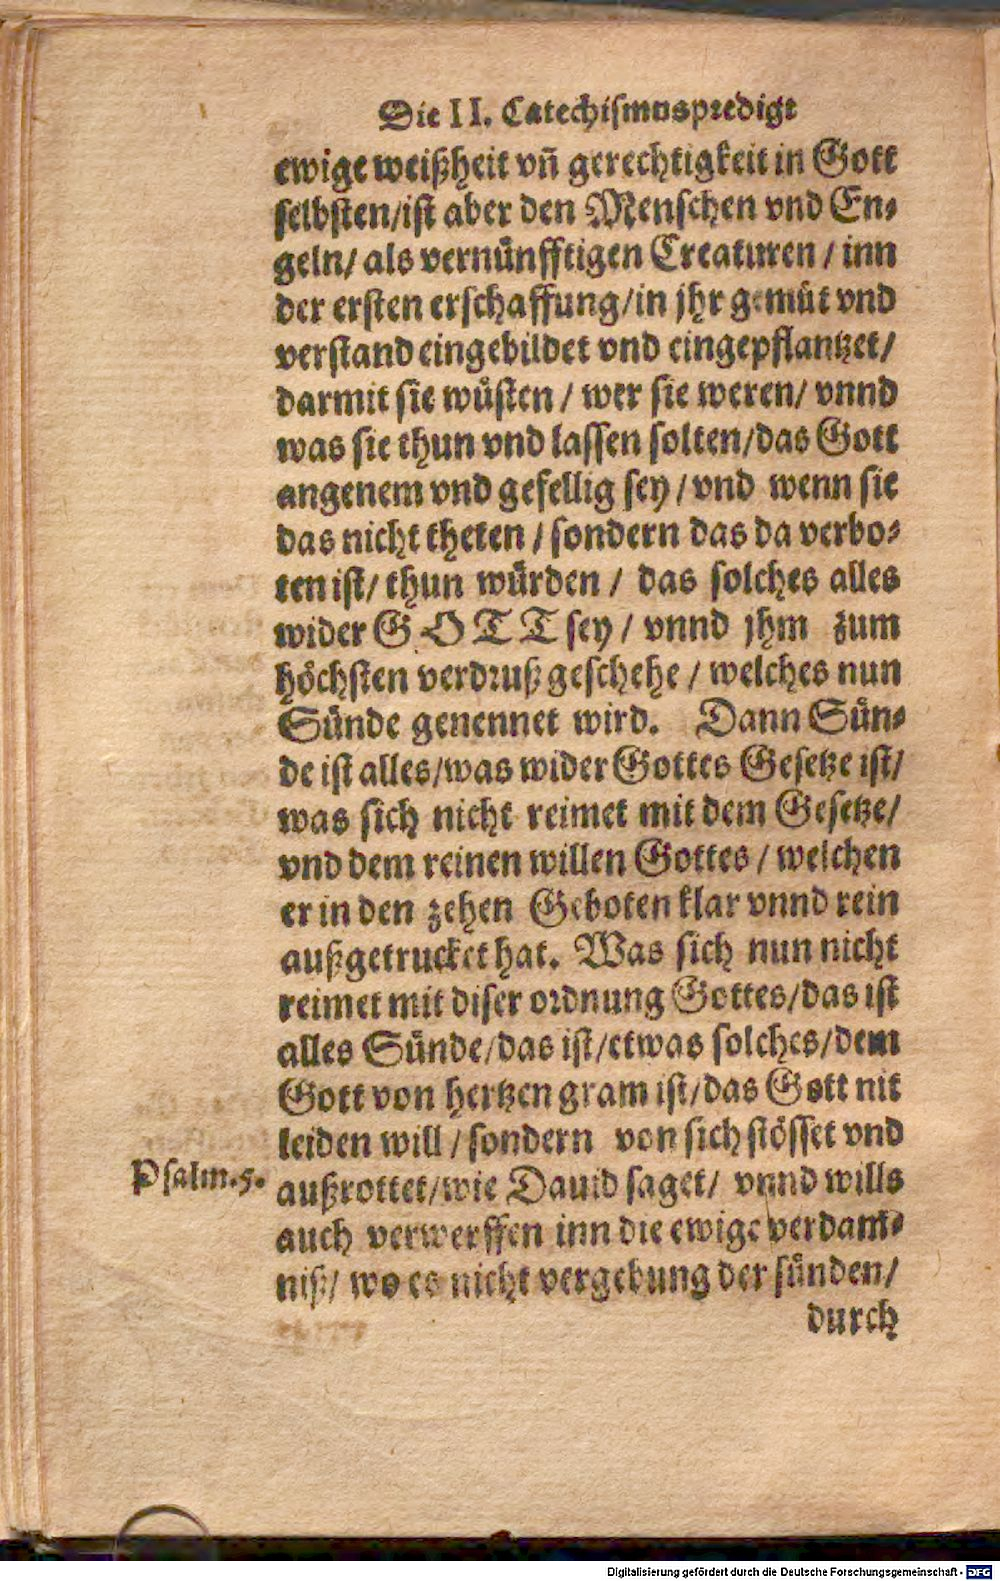 Die II. Catechismuspredigt
ewige weißheit vñ gerechtigkeit in Gott
selbsten/ist aber den Menschen vnd En-
geln/ als vernünfftigen Creaturen / inn
der ersten erschaffung/in jhr gemüt vnd
verstand eingebildet vnd eingepflantzet/
darmit sie wüsten / wer sie weren/ vnnd
was sie thun vnd lassen solten/das Gott
angenem vnd gefellig sey / vnd wenn sie
das nicht theten / sondern das da verbo-
ten ist/ thun würden / das solches alles
wider GOTT sey / vnnd jhm zum
höchsten verdruß geschehe / welches nun
Sünde genennet wird. Dann Sün-
de ist alles/was wider Gottes Gesetze ist/
was sich nicht reimet mit dem Gesetze/
vnd dem reinen willen Gottes / welchen
er in den zehen Geboten klar vnnd rein
außgetrucket hat. Was sich nun nicht
reimet mit diser ordnung Gottes/das ist
alles Sünde/das ist/etwas solches/dem
Gott von hertzen gram ist/das Gott nit
leiden will / sondern von sich stösset vnd
Psalm.5. außrottet/wie Dauid saget/ vnnd wills
auch verwerffen inn die ewige verdam-
niß/ wo es nicht vergebung der sünden/
durch
Digitalisierung gefördert durch die Deutsche Forschungsgemeinschaft - DFG